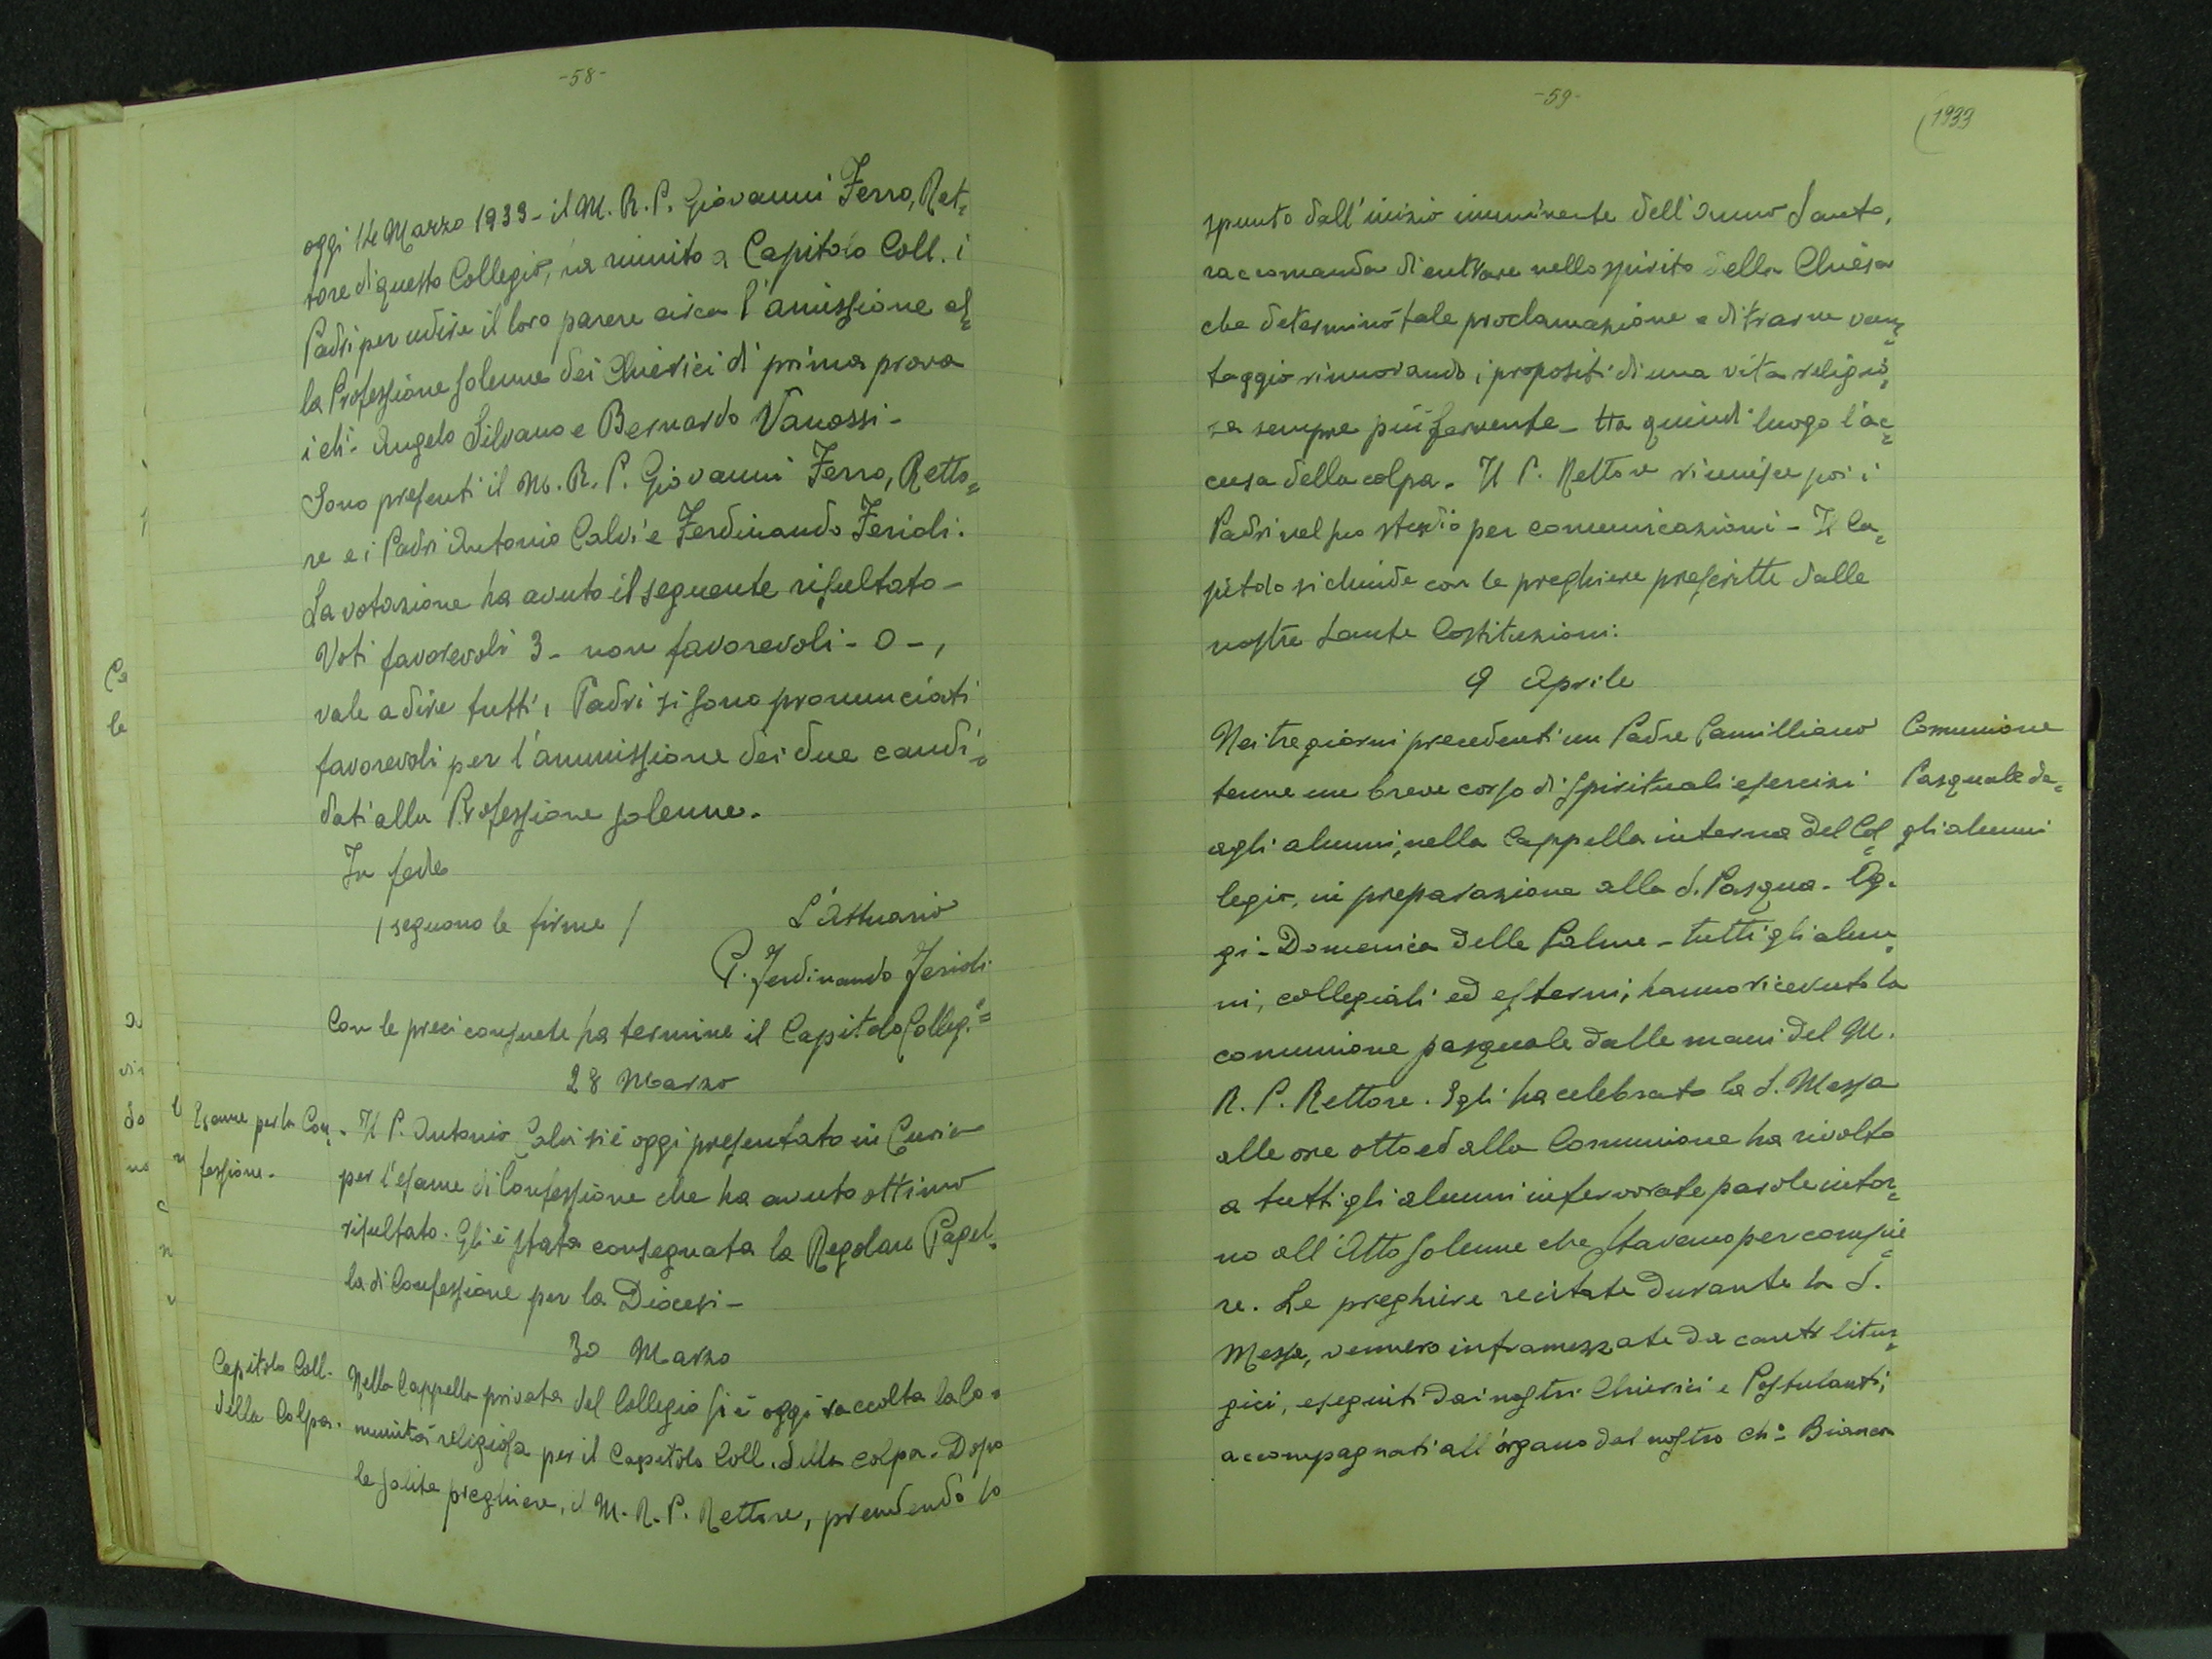 -58-
oggi 14 Marzo 1933 - il M. R. P. Giovanni Ferro, Ret-
tore di questo Collegio, ha riunito a Capitolo Coll. i
Padri per udire il loro parere circa l'amissione al-
la Professione solenne dei Chierici di prima prova
i ch: Angelo Silvano e Bernardo Vanossi -
Sono presenti il M. R. P. Giovanni Ferro, Retto=
re e i Padri Antonio Calvi e Ferdinando Ferioli.
La votazione ha avuto il seguente risultato -
Voti favorevoli 3 - non favorevoli - 0 - ,
vale a dire tutti i Padri si sono pronunciati
favorevoli per l'ammissione dei due candi=
dati alla Professione solenne.
In fede
/ seguono le firme /
L'Attuario
P. Ferdinando Ferioli
Con le preci consuete ha termine il Capitolo Colleg.=
28 Marzo
Esame per la Con=
fessione.
Il P. Antonio Calvi si è oggi presentato in Curia
per l'esame di Confessione che ha avuto ottimo
risultato. Gli è stata consegnata la Regolare Pagel=
la di Confessione per la Diocesi -
30 Marzo
Capitolo Coll.
della Colpa.
Nella Cappella privata del Collegio si è oggi raccolta la Co=
munità religiosa per il Capitolo Coll. della colpa. Dopo
le solite preghiere, il M. R. P. Rettore, prendendo lo
-59-
1933
spunto dall'inizio imminente dell'Anno Santo,
raccomanda di entrare nello spirito della Chiesa
che determinò tale proclamazione e di trarne van=
taggio rinnovando i propositi di una vita religio=
sa sempre più fervente - Ha quindi luogo l'ac=
cusa della colpa. Il P. Rettore riunisce poi i
Padri nel suo studio per comunicazioni - Il Ca=
pitolo si chiude con le preghiere prescritte dalle
nostre Sante Costituzioni.
9 Aprile
Comunione
Pasquale de=
gli alunni
Nei tre giorni precedenti un Padre Camilliano
tenne un breve corso di spirituali esercizi
agli alunni, nella Cappella interna del Col=
legio, in preparazione alla S. Pasqua. Og=
gi - Domenica delle Palme - tutti gli alun=
ni, collegiali ed esterni, hanno ricevuto la
comunione pasquale dalle mani del M.
R. P. Rettore. Egli ha celebrato la S. Messa
alle ore otto ed alla Comunione ha rivolto
a tutti gli alunni infervorate parole intor=
no all'Atto solenne che stavano per compie=
re. Le preghiere recitate durante la S.
Messa, vennero inframezzate da canti litur=
gici, eseguiti dai nostri Chierici e Postulanti,
accompagnati all'organo dal nostro Ch: Bianco